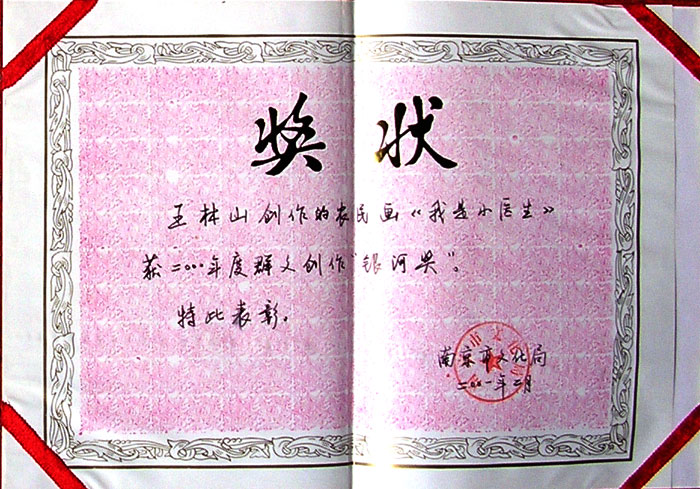 奖状
王林山创作的农民画《我是小医生》
获二〇〇〇年度群文创作“银河奖”。
特此表彰。
南京市文化局
二〇〇一年二月